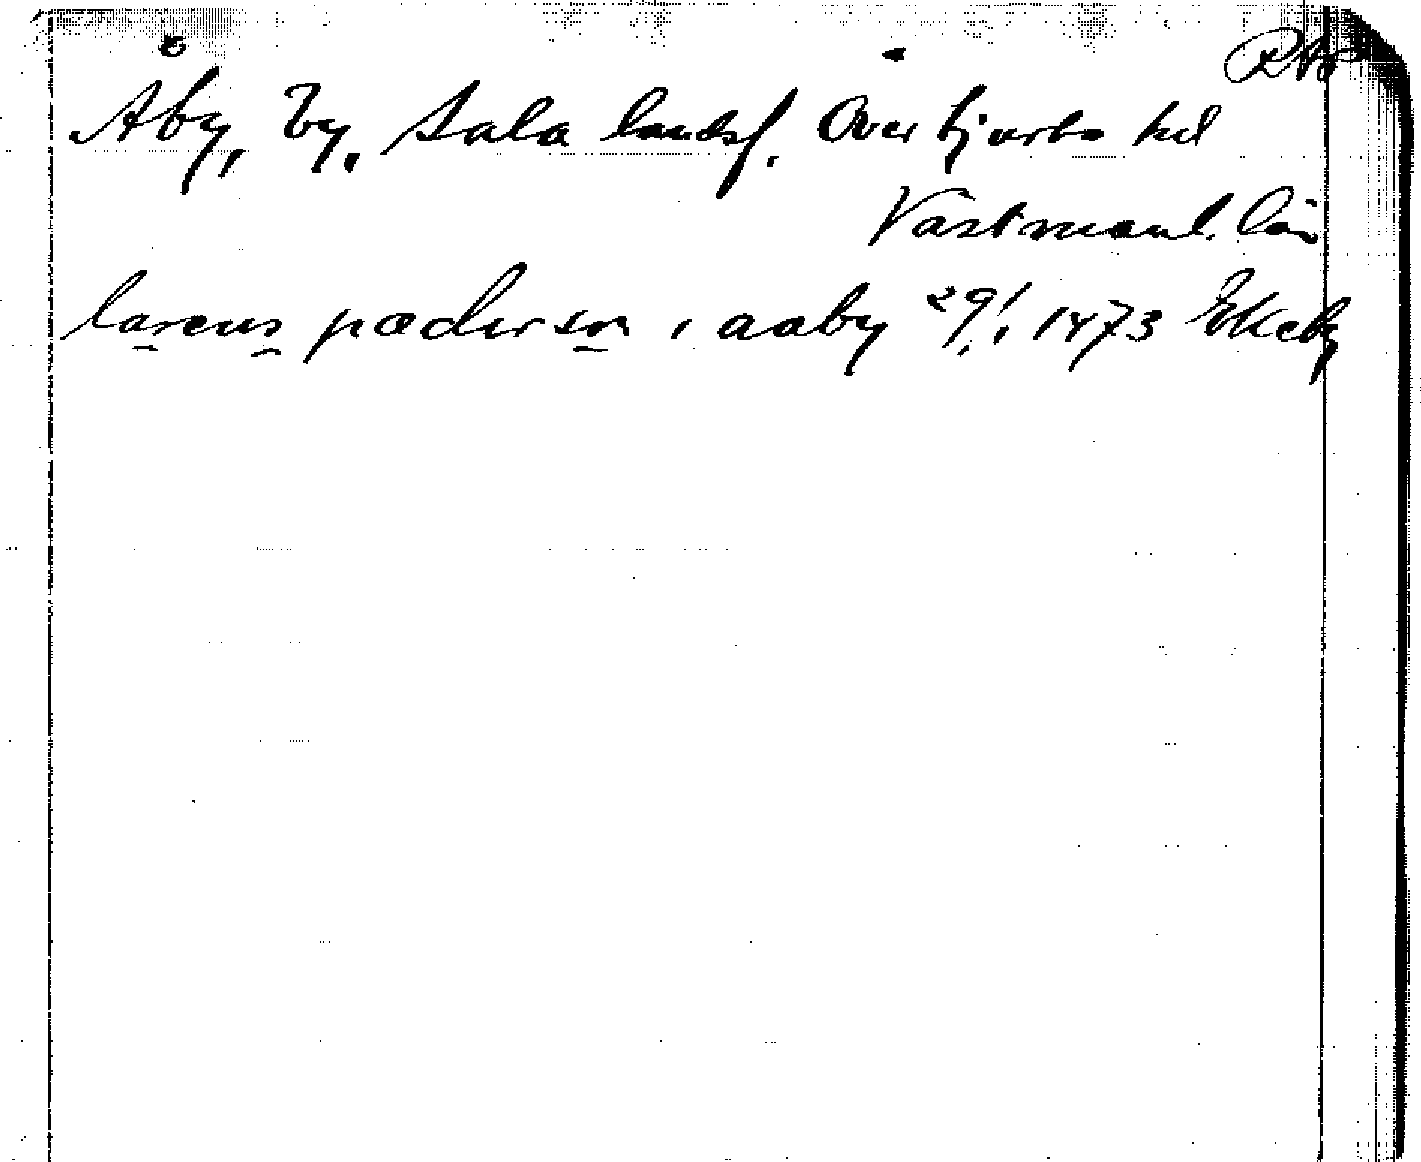 RAp
Åby, by, Sala landsf. Övertjurbo hd
Västmanl. län
larens pæderson i aaby 29/1 1473 Ekeby